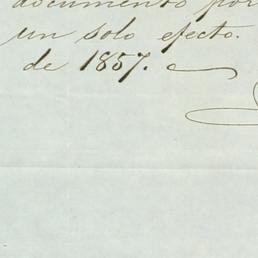 documento por
un solo efecto.
de 1857.